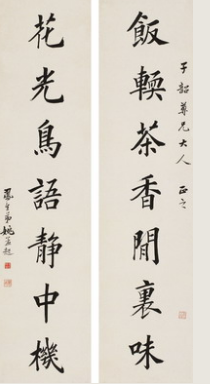 子韶尊兄大人 正之
飯輭茶香閒裏味
花光鳥語靜中機